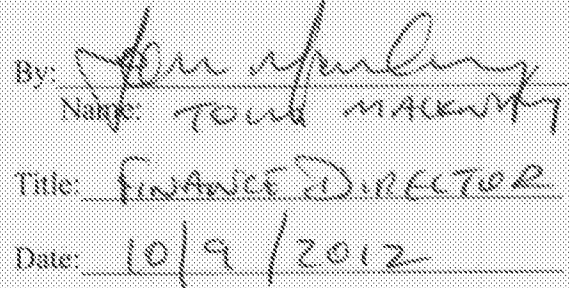 By:
Name:
Title: FINANCE DIRECTOR
Date: 10/9/2012